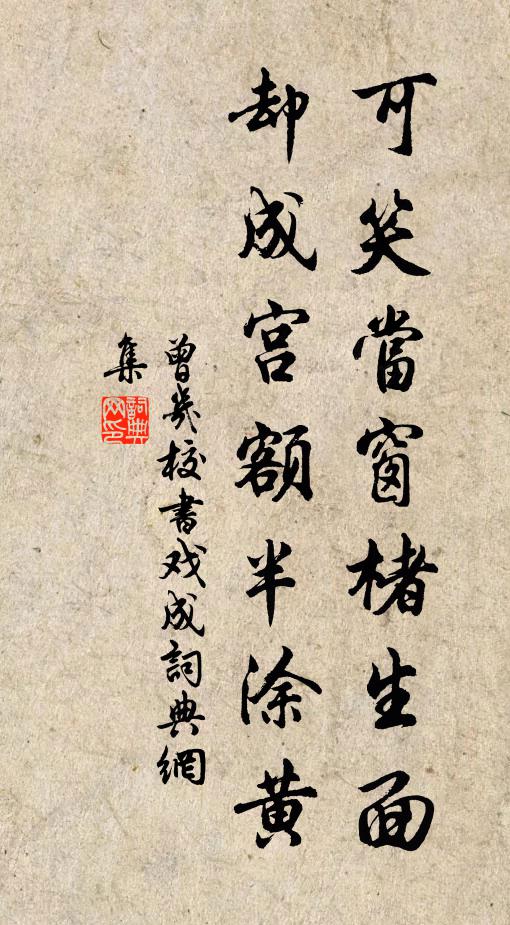 可笑當窗楮生面
却成宫額半涂黄
曾幾校書戏成詞典網
集
詞典
网印